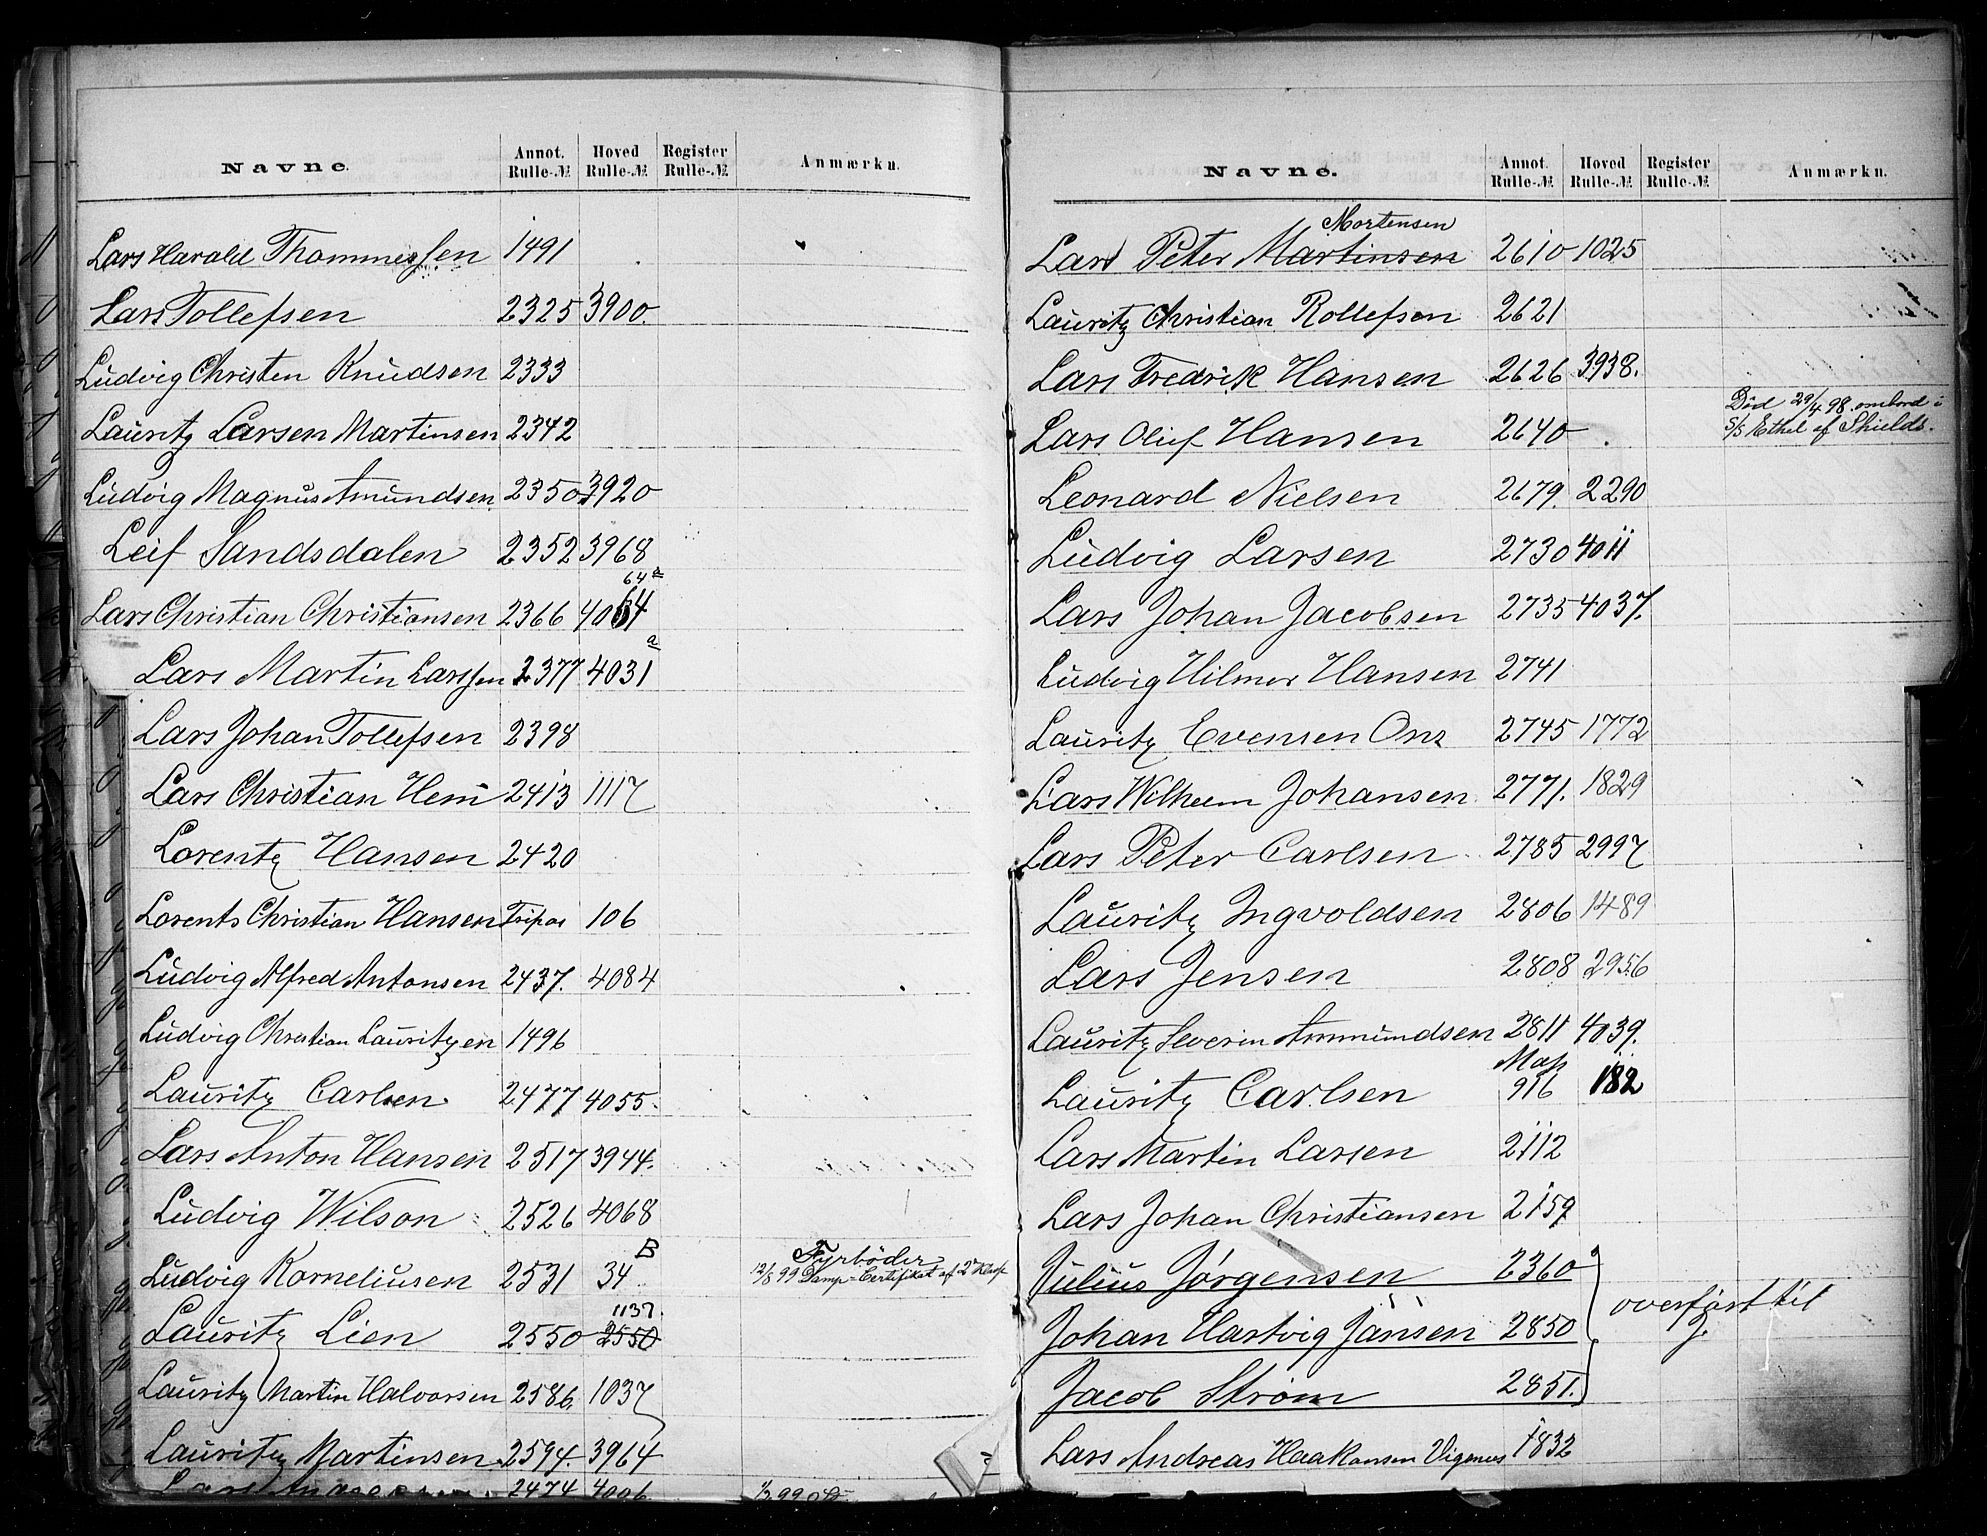 Navne. Annot. Rulle-№ Hoved Rulle-№ Register Rulle-№ Anmærkn.
Lars Harald Thommessen 1491
Lars Tollefsen 2325 3900.
Ludvig Christen Knudsen 2333
Lauritz Larsen Martinsen 2342
Ludvig Magnus Amundsen 2350 3920
Leif Sandsdalen 2352 3968
64 a
Lars Christian Christiansen 2366 4064
Lars Martin Larssen 2377 4031 a
Lars Johan Tollefsen 2398
Lars Christian Hem 2413 1117
Lorentz Hansen 2420
Lorents Christian Hansen Tripos 106
Ludvig Alfred Antonsen 2437. 4084
Ludvig Christian Lauritzen 1496
Lauritz Carlsen 2477 4055.
Lars Anton Hansen 2517 3944.
Ludvig Wilson 2526 4068
Ludvig Korneliusen 2531 34 B Fyrbøder
12/8 99 Damp-Certifikat af 2 Klasse
1137.
Lauritz Lien 2550 2550
Lauritz Martin Halvorsen 2586. 1037
Lauritz Martinsen 2594. 3964
Lars 2474 4006
Navne. Annot. Rulle-№ Hoved Rulle-№ Register Rulle-№ Anmærkn.
Mortensen
Lars Peter Martinsen 2610 1025
Lauritz Christian Rollefsen 2621
Lars Fredrik Hansen 2626 3938.
Død 29/4 98 ombord i
Lars Oluf Hansen 2640 S/S Ethel af Shields.
Leonard Nielsen 2679. 2290
Ludvig Larsen 2730 4011
Lars Johan Jacobsen 2735 4037.
Ludvig Hilmer Hansen 2741
Lauritz Evensen Ons 2745 1772
Lars Wilhelm Johansen 2771. 1829
Lars Peter Carlsen 2785 2997
Lauritz Ingvoldsen 2806 1489
Lars Jensen 2808 2956
Lauritz Severin Ammundsen 2811 4039.
Mask
Lauritz Carlsen 916 182
Lars Martin Larsen 2112
Lars Johan Christiansen 2159
Julius Jørgensen 2360
overført til
J.
Johan Hartvig Jansen 2850
Jacob Strøm 2851.
Lars Andreas Haakonsen Vigenes 1832